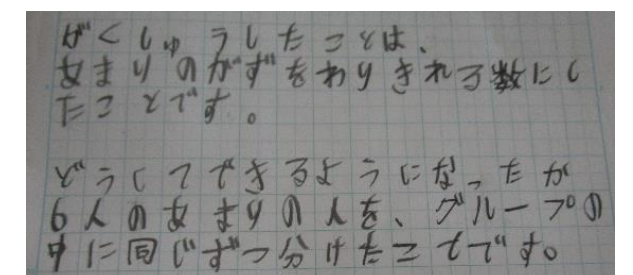 がくしゅうしたことは、
あまりのかずをわりきれる数にし
たことです。
どうしてできるようになったか
6人のあまりの人を、グループの
中に同じずつ分けたことです。